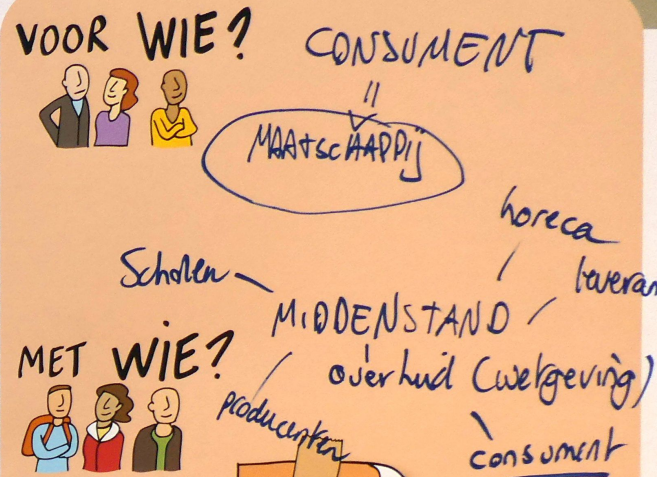 VOOR WIE?
CONSUMENT
=
MAATSCHAPPIJ
horeca
Scholen
leveran
MIDDENSTAND
MET WIE?
overheid (wetgeving)
producenten
consument